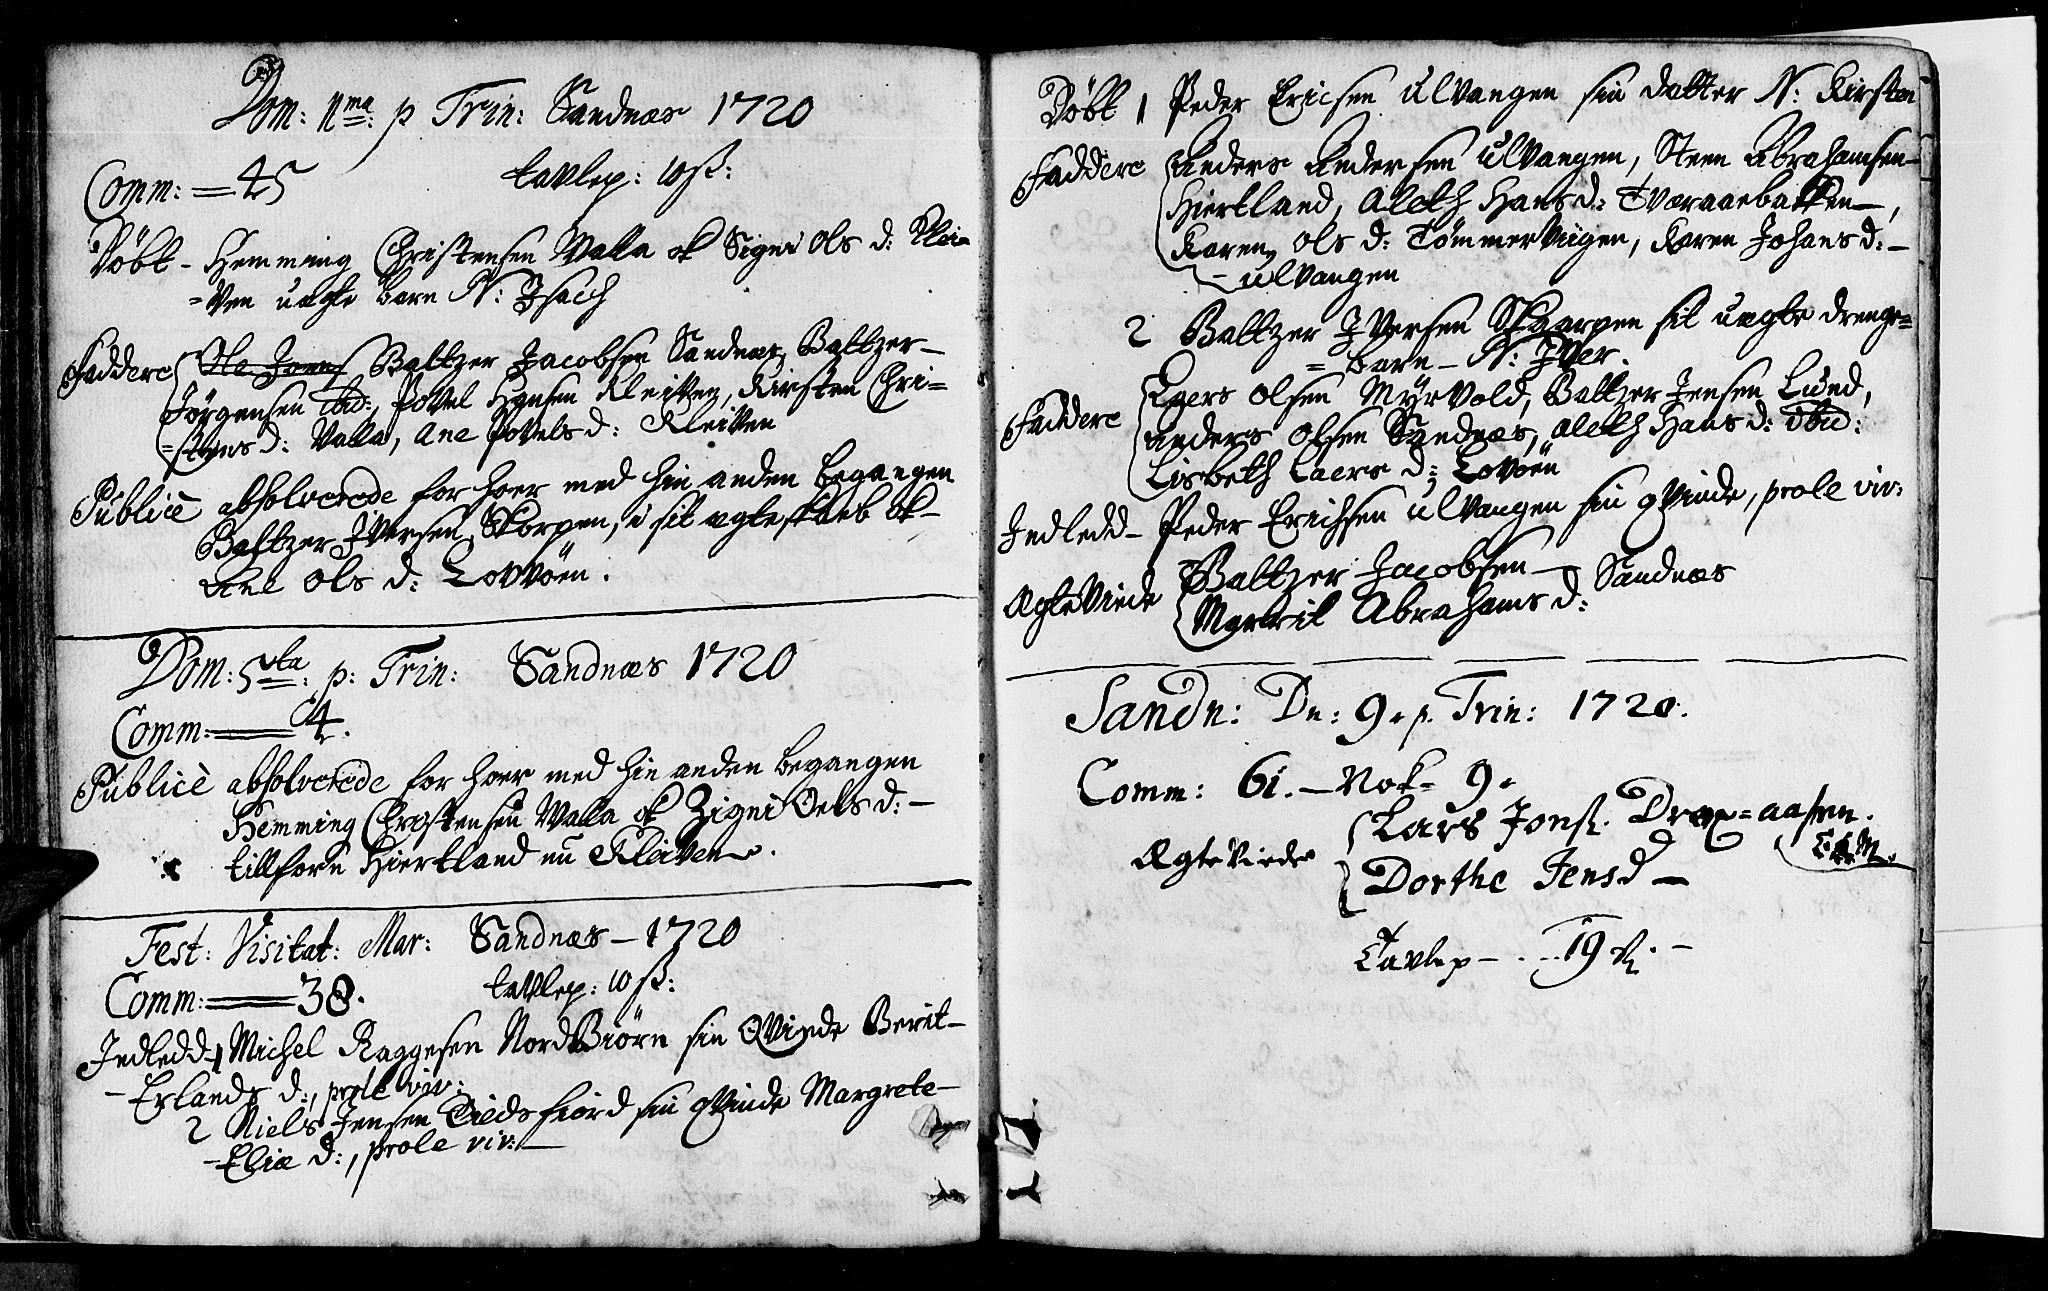 Dom: 1ma: p Trin: Sandnæs 1720
Comm: = 45 tavlep: 10 ß:
Døbt - Hemming Christensen Walla ok Signi Ols d: Klei=
=ven uægte barn N: Isach
Faddere Ole Joens Baltzer Jacobsen Sandnæs, Baltzer
Jørgensen Ibid:, Povel Hansen Kleitven, Kirsten Chri=
=stens d: Valla, Ane Povels d: Kleitven
Publicè absolverede for hoer med hin anden begangen
Baltzer Iversen Skorpen, i sit ægteskaeb ok
Ane Ols d: Lovvöen.
Dom: 5ta: p: Trin: Sandnæs 1720
Comm: = 4.
Publicè absolverede for hoer med hin anden begangen
Hemming Christensen Walla ok Zigni Oels d: -
tillforn Hiertland nu Kleiven.
Fest: Visitat: Mar: Sandnæs - 1720
Comm: = 38. tavlep: 10 ß:
Indledd - 1 Michel Raggesen NordBiörn sin Qvinde Berit -
- Erlands d:, prole viv:
2 Niels Jensen Tiedsfiord sin qvinde Margrete -
- Eliæ d:, prole viv: -
Døbt 1 Peder Ericsen Ulvangen sin datter N: Kirsten
Faddere Anders Andersen Ulvangen, Steen Abrahamsen -
Hiertland, Aleth Hans d: Tværaaebakken -,
Karen Ols d: Tömmerviigen, Karen Johans d: -
- Ulvangen
2 Baltzer Iversen Skaarpen sit uægte drenge=
= barn - N: Iver.
Faddere Laers Olsen Myrvold, Baltzer Jensen Lund,
Anders Olsen Sandnæs, Aleth Hans d: Ibid:
Lisbeth Laers d: Lovöen
Indledd - Peder Erichsen Ulvangen sin qvinde, prole viv:
Ægteviede Baltzer Jacobsen - Sandnæs
Marrit Abrahams d:
Sandn: Dn: 9. p. Trin: 1720.
Comm: 61. - Nok = 9.
Ægteviede Lars Jons. = aasen.
Dorthe Jensd -
Tavlep - . .. 19 ß. -